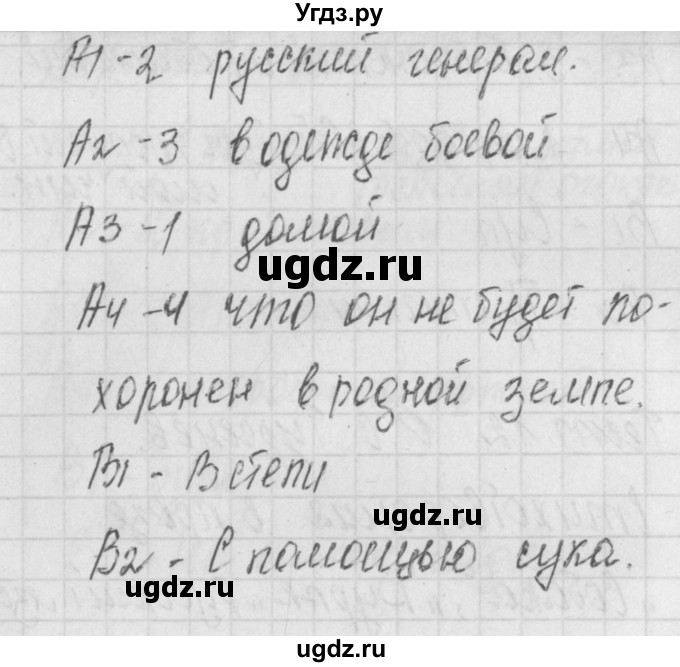 Угдз.ру
А1-2 русский генерал.
А2-3 в одежде боевой
А3-1 домой
ugdz.ru
А4-4 что он не будет по-
хоронен в родной земле.
В1 - В степи
ugdz.ru
В2 - С помощью сука.
ugdz.ru
ugdz.ru